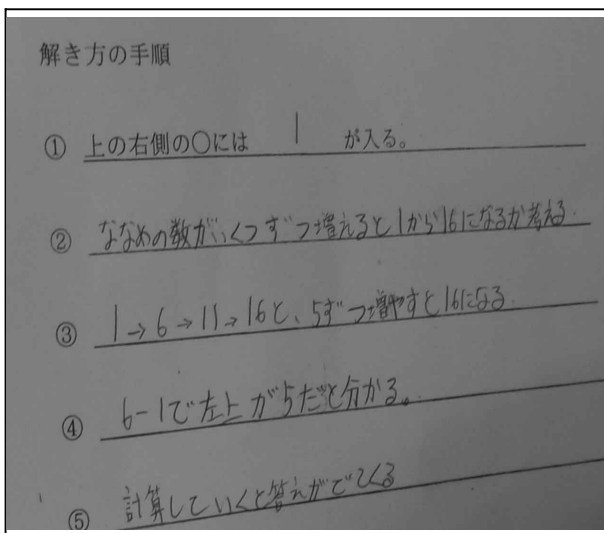 解き方の手順
① 上の右側の○には 1 が入る。
② ななめの数がいくつずつ増えると1から16になるか考える.
③ 1→6→11→16と、5ずつ増やすと16になる.
④ 6-1で左上が5だと分かる。
⑤ 計算していくと答えがでてくる